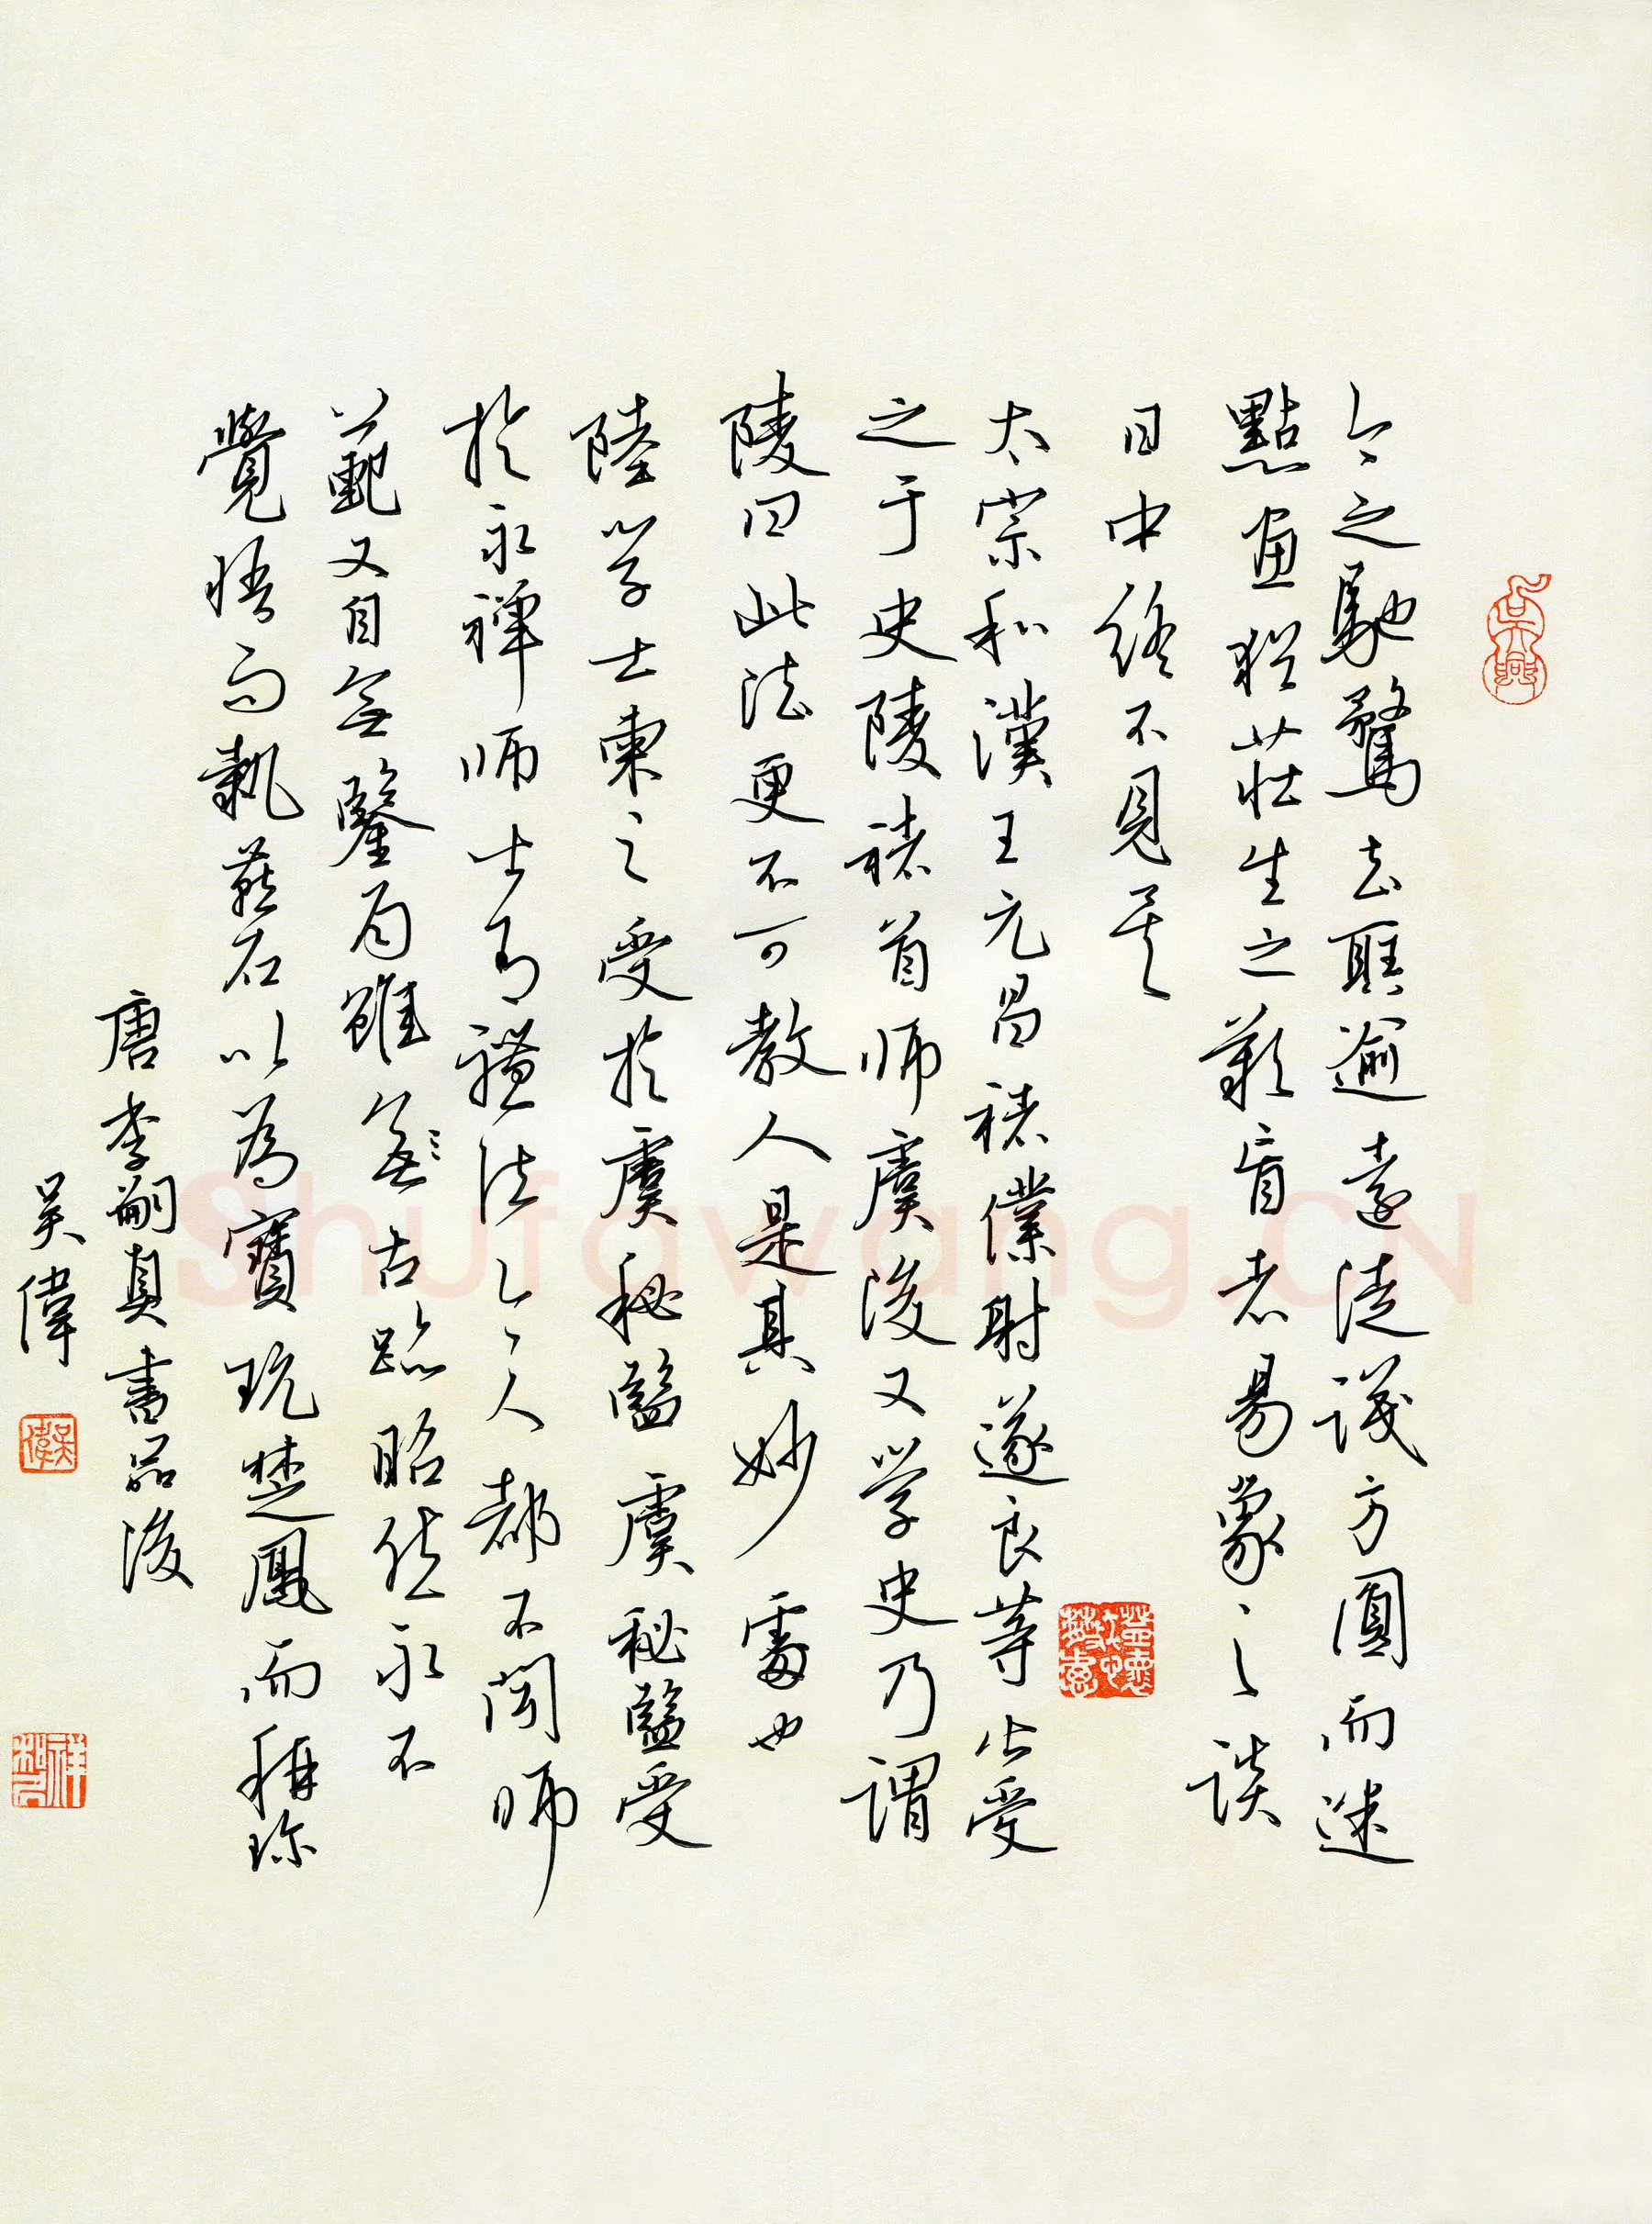 今之馳騖去聖逾遠徒識方圓而迷
點畫猶莊生之歎盲者易象之談
日中終不見矣
太宗和漢王元昌褚僕射遂良等皆受
之于史陵褚首師虞後又學史乃謂
陵曰此法更不可教人是其妙處也
陸學士柬之受於虞秘監虞秘監受
於永禪師皆有體法今人都不聞師
範又自無鑒局雖無古跡昭然永不
覺悟而執燕石以為寶玩楚鳳而稱珍
唐李嗣真書品後
吳偉
吳偉
Shufawang.CN